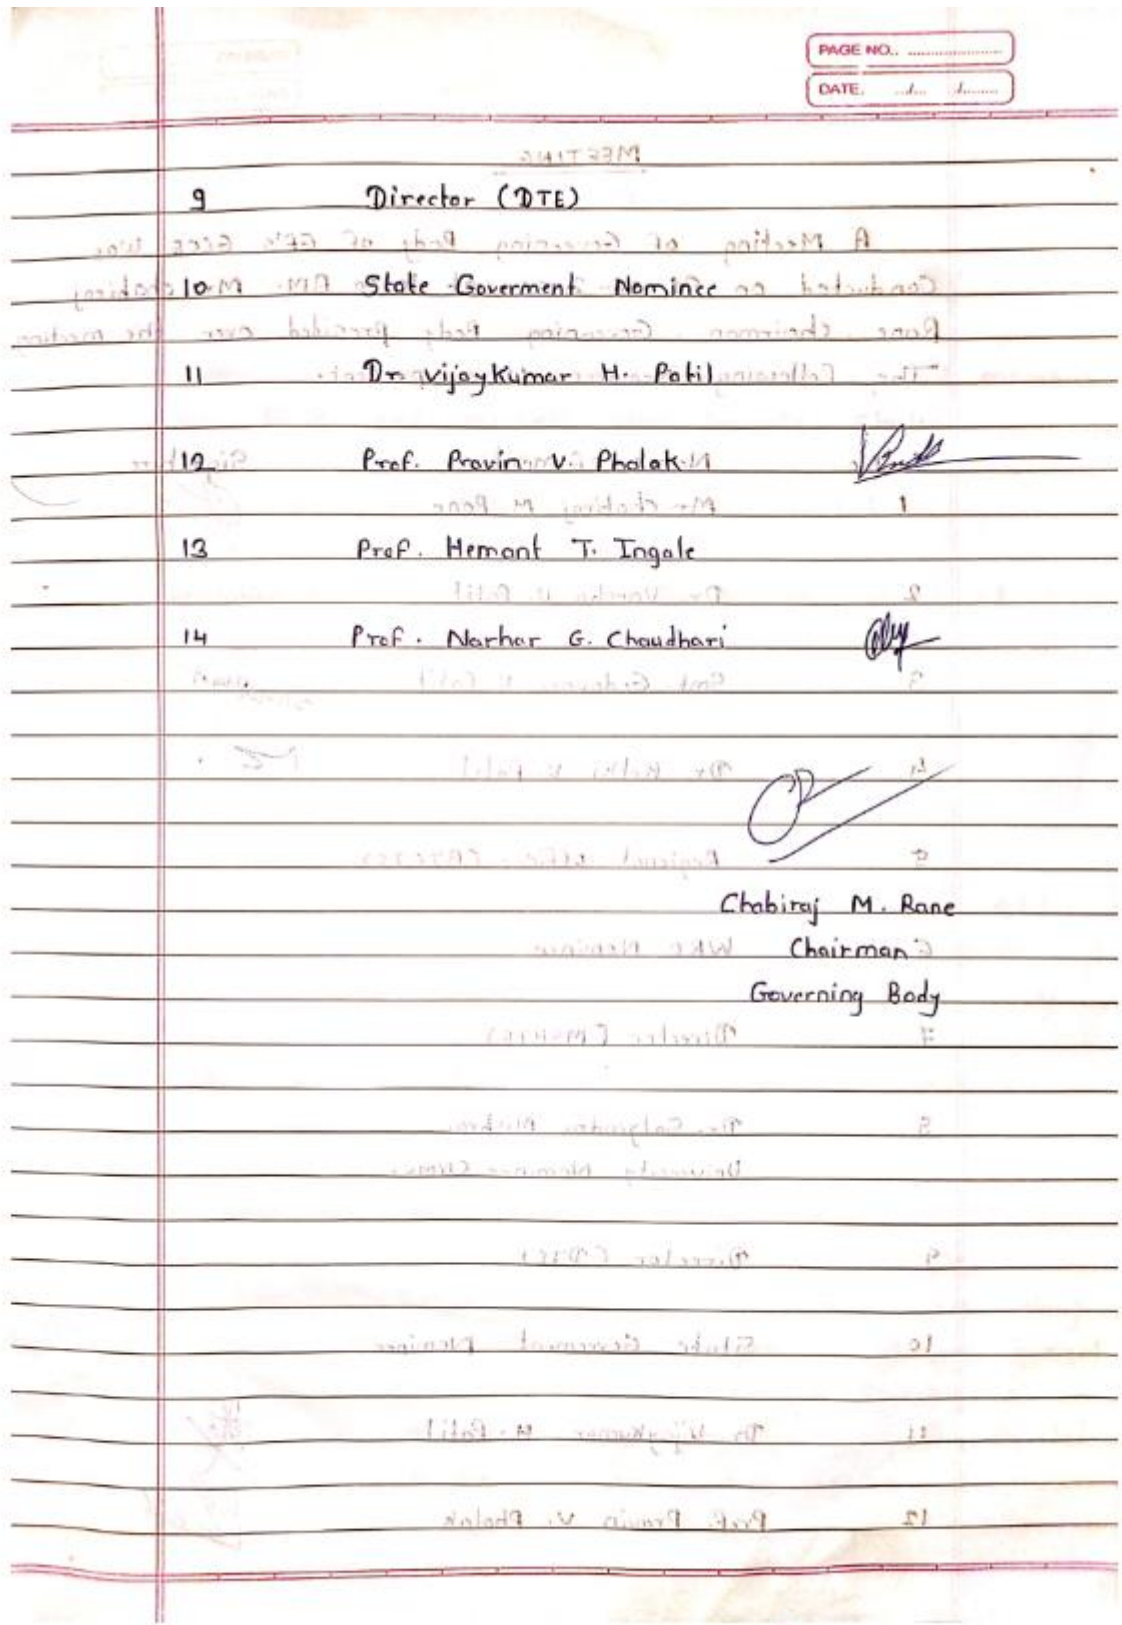 PAGE NO.. .....................
DATE. ..../.... /.........
9 Director (DTE)
10 State Goverment Nominee
11 Dr. vijaykumar H. Patil
12 Prof. Pravin V. Phalak
13 Prof. Hemant T. Ingale
14 Prof. Narhar G. Chaudhari
Chabiraj M. Rane
Chairman
Governing Body